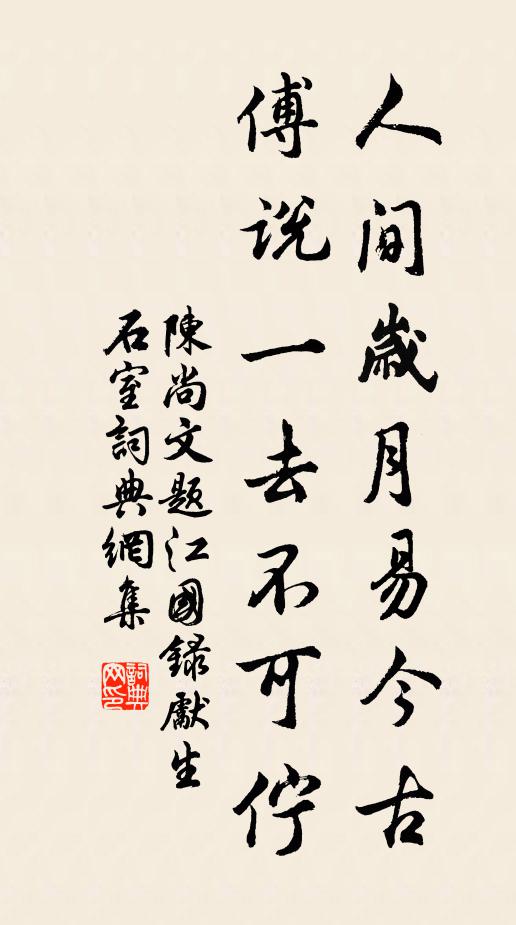 人间歳月易今古
傅说一去不可佇
陳尚文题江國録獻生
石室詞典網集
詞典
网印